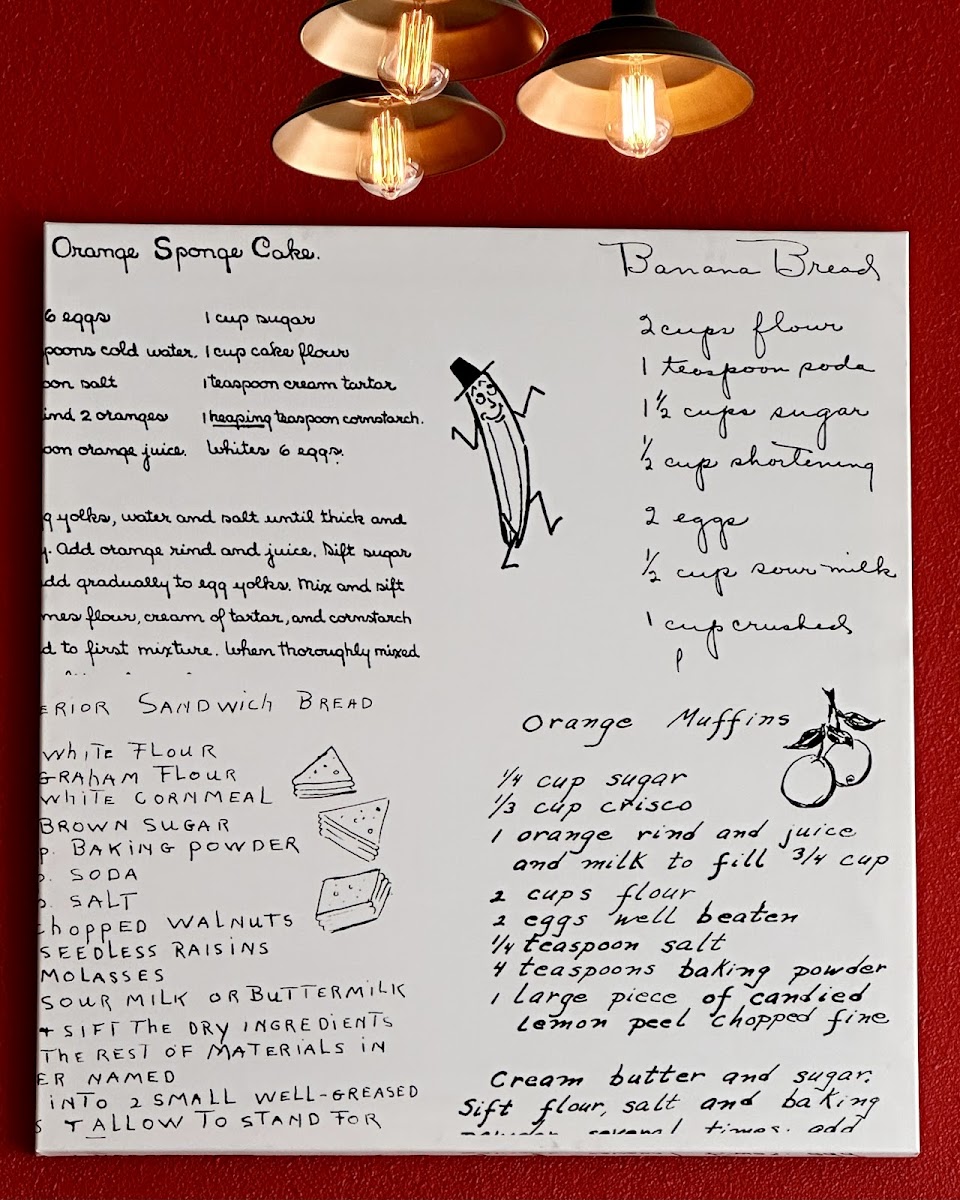 Orange Sponge Cake.
6 eggs 1 cup sugar
poons cold water, 1 cup cake flour
oon salt 1 teaspoon cream tartar
ind 2 oranges 1 heaping teaspoon cornstarch.
oon orange juice. Whites 6 eggs.
g yolks, water and salt until thick and
y. Add orange rind and juice. Sift sugar
dd gradually to egg yolks. Mix and sift
mes flour, cream of tartar, and cornstarch
d to first mixture. When thoroughly mixed
Banana Bread
2 cups flour
1 teaspoon soda
1 1/2 cups sugar
1/2 cup shortening
2 eggs
1/2 cup sour milk
1 cup crushed
ERIOR SANDWICH BREAD
WHITE FLOUR
GRAHAM FLOUR
WHITE CORNMEAL
BROWN SUGAR
P. BAKING POWDER
. SODA
. SALT
CHOPPED WALNUTS
SEEDLESS RAISINS
MOLASSES
SOUR MILK OR BUTTERMILK
+ SIFT THE DRY INGREDIENTS
THE REST OF MATERIALS IN
ER NAMED
INTO 2 SMALL WELL-GREASED
S + ALLOW TO STAND FOR
Orange Muffins
1/4 cup sugar
1/3 cup crisco
1 orange rind and juice
and milk to fill 3/4 cup
2 cups flour
2 eggs well beaten
1/4 teaspoon salt
4 teaspoons baking powder
1 large piece of candied
lemon peel chopped fine
Cream butter and sugar.
Sift flour, salt and baking
powder several times. add